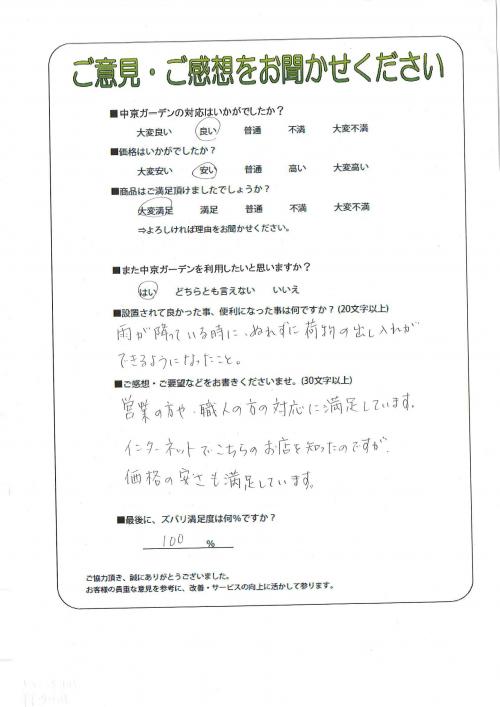 ご意見・ご感想をお聞かせください
■中京ガーデンの対応はいかがでしたか？
大変良い 良い 普通 不満 大変不満
■価格はいかがでしたか？
大変安い 安い 普通 高い 大変高い
■商品はご満足頂けましたでしょうか？
大変満足 満足 普通 不満 大変不満
⇒よろしければ理由をお聞かせください。
■また中京ガーデンを利用したいと思いますか？
はい どちらとも言えない いいえ
■設置されて良かった事、便利になった事は何ですか？(20文字以上)
雨が降っている時に、ぬれずに荷物の出し入れが
できるようになったこと。
■ご感想・ご要望などをお書きくださいませ。(30文字以上)
営業の方や、職人の方の対応に満足しています。
インターネットでこちらのお店を知ったのですが、
価格の安さも満足しています。
■最後に、ズバリ満足度は何％ですか？
100 ％
ご協力頂き、誠にありがとうございました。
お客様の貴重な意見を参考に、改善・サービスの向上に活かして参ります。